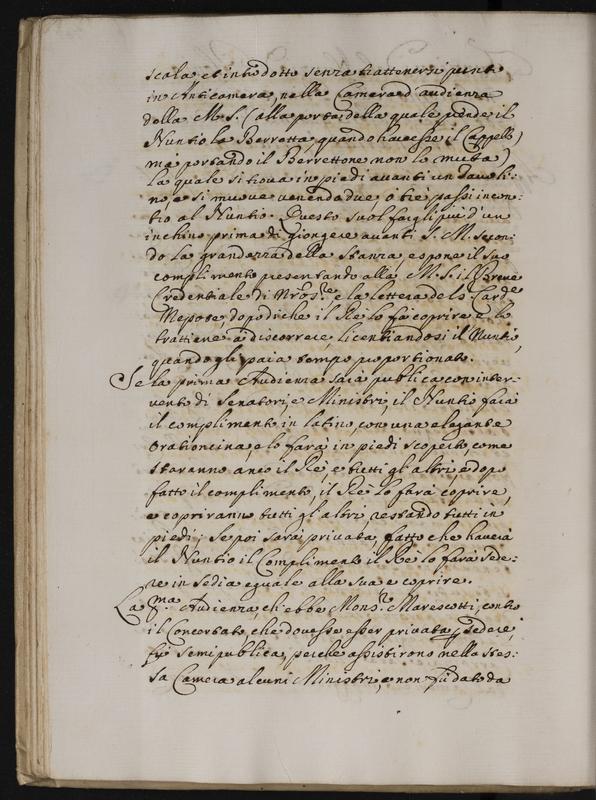 scala, et introdotto senza trattenersi punto
in Anticamera, nella Camera d'audienza
della M. S. (alla porta della quale prende il
Nuntio la Berretta quando havesse il Cappello,
mà portando il Berrettone non lo muta)
la quale si trova in piedi avanti un tavoli:
no, e si muove venendo due, ò trè passi incon:
tro al Nuntio. Questo suol fargli più d'un
inchino prima di giongere avanti S. M. secon:
do la grandezza della stanza, e spone il suo
complimento presentando alla M. S. il Breve
Credentiale di Nro Sre, e la lettera del S. Carde
Nepote, dopo di che il Rè lo fà coprire, e lo
trattiene à discorrere, licentiandosi il Nuntio,
quando gli paia tempo proportionato.
Se la prima Audienza sarà publica con inter:
vento di Senatori, e Ministri, il Nuntio farà
il complimento in latino, con una elegante
orationcina, e lo farà in piedi scoperto, come
staranno anco il Rè, e tutti gl'altri, e dopo
fatto il complimento, il Rè lo farà coprire,
e copriranno tutti gl'altri restando tutti in
piedi; se poi sarà privata, fatto che haverà
il Nuntio il Complimento il Rè lo farà sede:
re in sedia eguale alla sua e coprire.
La pma Audienza, ch'ebbe Monsr Marescotti, contro
il Concertato, che dovesse esser privata, e sedere,
fù Semipublica, perche assistirono nella stes:
sa Camera alcuni Ministri, e non fù dato da